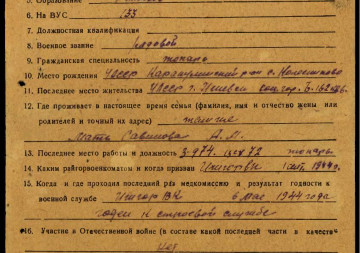 6. На ВУС 133
7. Должностная квалификация
8. Военное звание рядовой
9. Гражданская специальность токарь
10. Место рождения
11. Последнее место жительства УАССР г. Ижевск
12. Где проживает в настоящее время семья (фамилия, имя и отчество жены или
родителей и точный их адрес)
Мать Савинова А. М.
13. Последнее место работы и должность з-д 74 цех 72 токарь
14. Каким райгорвоенкоматом и когда призван 1944г.
15. Когда и где проходил последний раз медкомиссию и результат годности к
военной службе 6 мая 1944 года
годен к строевой службе
16. Участие в Отечественной войне (в составе какой последней части в качестве
нет